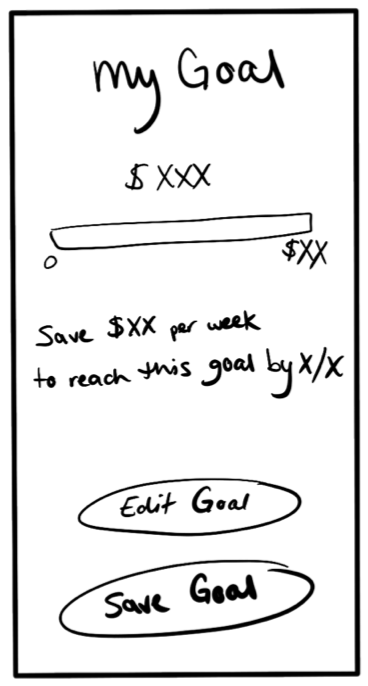 My Goal
$XXX
0
$XX
Save $XX per week
to reach this goal by X/X
Edit Goal
Save Goal